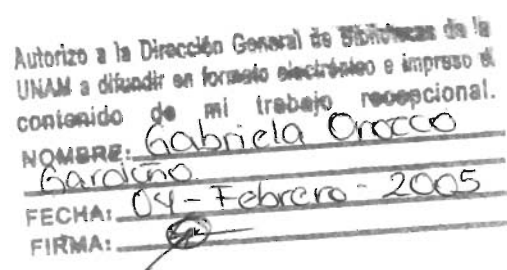 Autorizo a la Dirección General de Bibliotecas de la
UNAM a difundir en formato electrónico e impreso el
contenido de mi trabajo recepcional.
NOMBRE: Gabriela Orocco
Garduño
FECHA: 04-Febrero-2005
FIRMA: